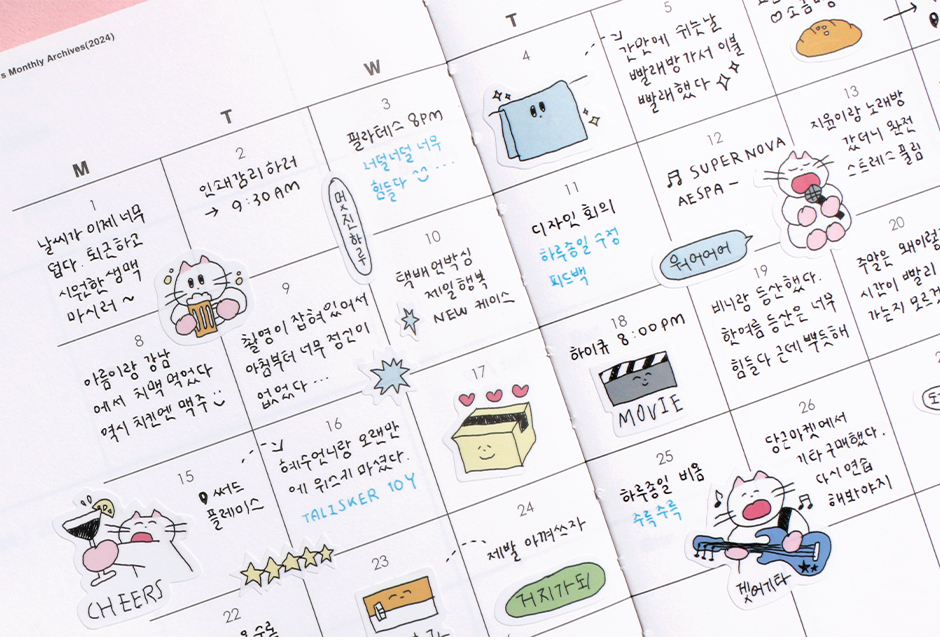 s Monthly Archives(2024)
M
T
W
T
1
날씨가 이제 너무
덥다. 퇴근하고
시원한 생맥
마시러 ~
2
인쇄감리 하러
→ 9:30 AM
3
필라테스 8PM
너덜너덜 너무
힘들다 ...
멋진하루
4
5
간만에 쉬는날
빨래방가서 이불
빨래했다
8
아름이랑 강남
에서 치맥 먹었다
역시 치킨엔 맥주
9
촬영이 잡혀있어서
아침부터 너무 정신이
없었다 ...
10
택배언박싱
제일행복
NEW 케이스
11
디자인 회의
하루종일 수정
피드백
12
SUPER NOVA
AESPA –
워어어어
13
지윤이랑 노래방
갔더니 완전
스트레스 풀림
15
써드
플레이스
CHEERS
16
혜수언니랑 오랜만
에 위스키 마셨다.
TALISKER 10Y
17
18
하이큐 8:00PM
MOVIE
19
비니랑 등산했다.
한여름 등산은 너무
힘들다 근데 뿌듯해
20
주말은 왜이럼
시간이 빨리
가는지 모르게
22
23
24
제발 아껴쓰자
거지가 되
25
하루종일 비옴
주륵주륵
26
당근마켓에서
기타 구매했다.
다시 연습
해봐야지
겟어기타